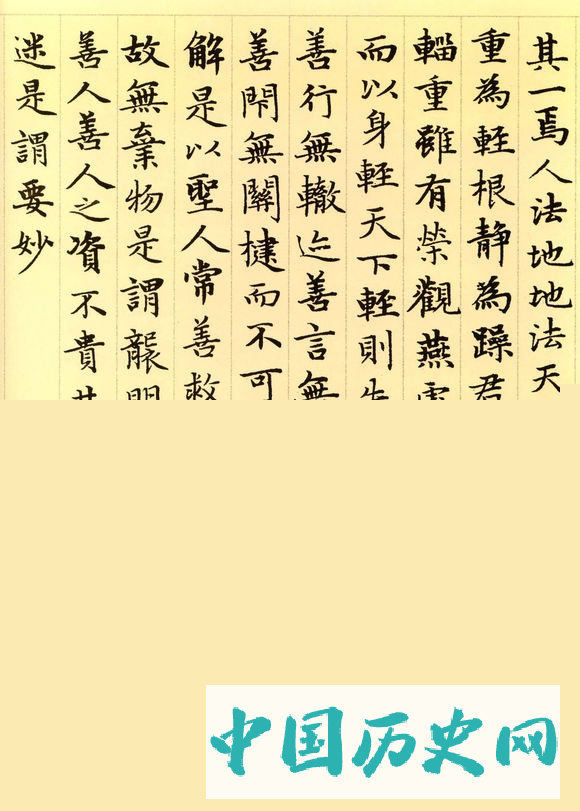 其一焉人法地地法天
重為輕根静為躁君
輜重雖有榮觀燕
而以身輕天下輕則
善行無轍迹善言無
善閇無關楗而不可
解是以聖人常善救
故無棄物是謂襲
善人善人之資不貴
迷是謂要妙
中国历史网